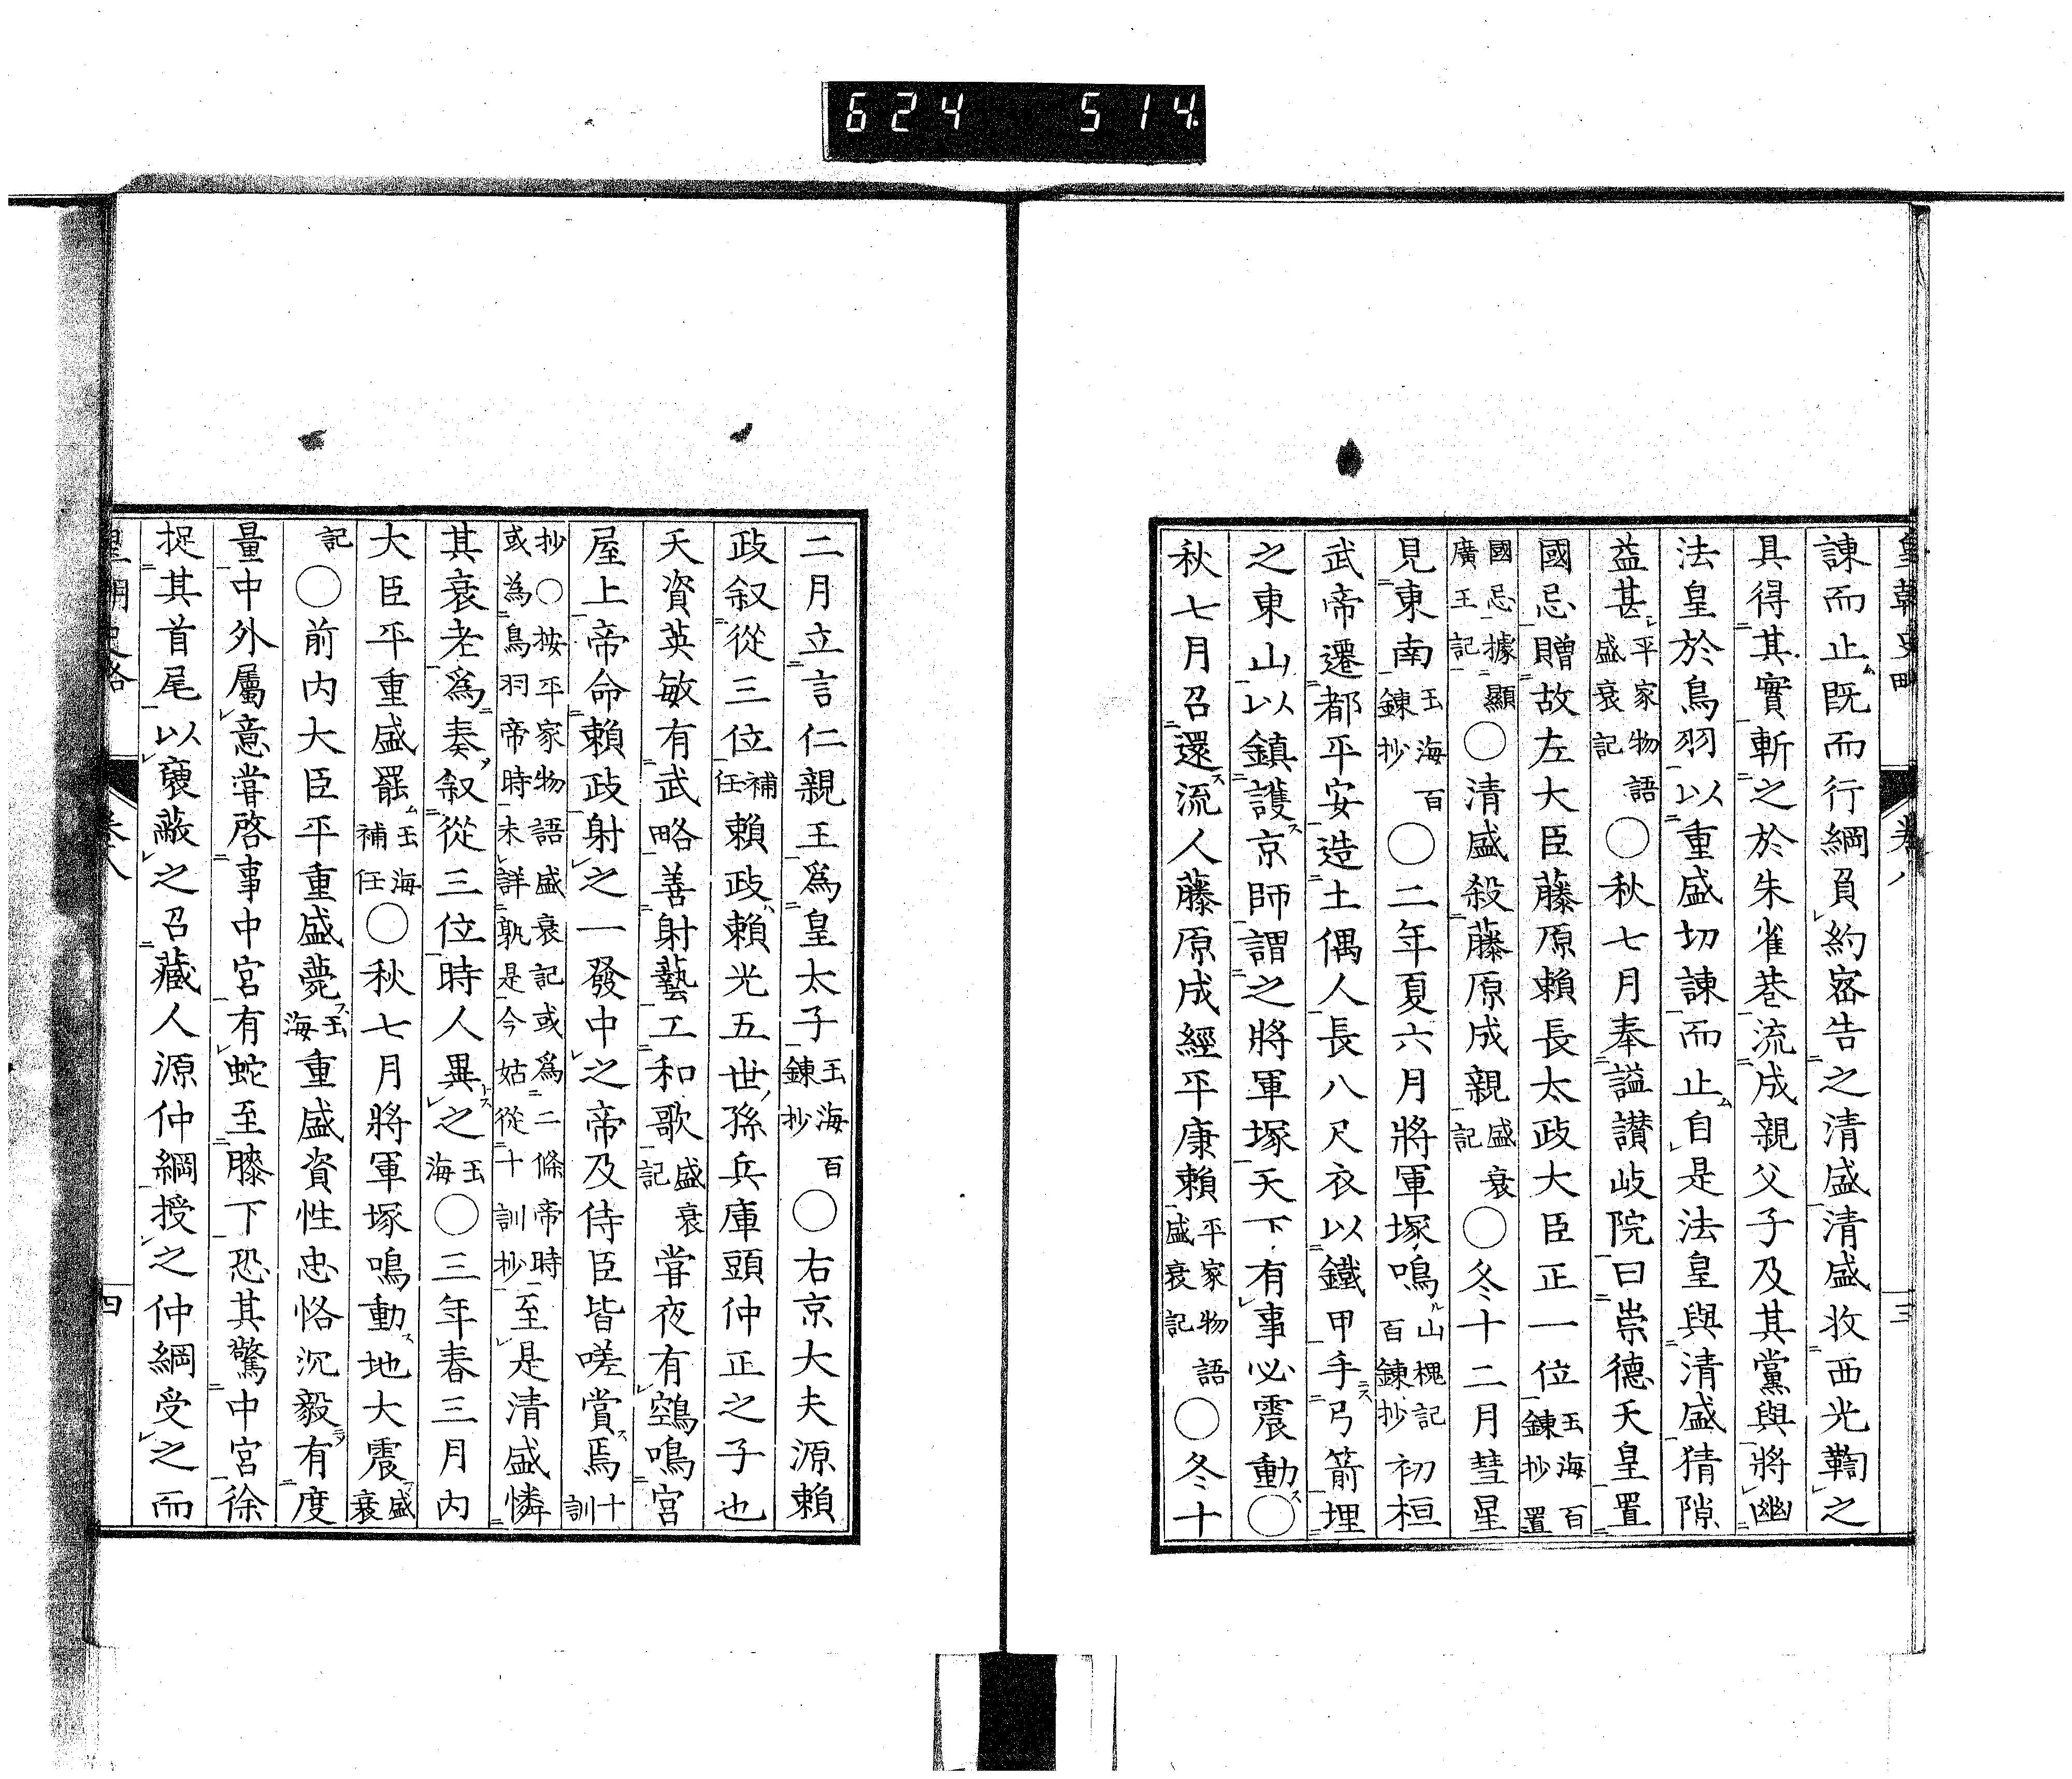 624 514
皇朝史略 卷八 三
諫而止既而行綱負約密告之清盛清盛收西光鞫之
具得其實斬之於朱雀巷流成親父子及其黨與將幽
法皇於鳥羽以重盛切諫而止自是法皇與清盛猜隙
益甚平家物語盛衰記〇秋七月奉謚讃岐院曰崇德天皇置
國忌贈故左大臣藤原賴長太政大臣正一位玉海百鍊抄置
國忌據顯廣王記〇清盛殺藤原成親盛衰記〇冬十二月彗星
見東南玉海百鍊抄〇二年夏六月將軍塚鳴山槐記百鍊抄初桓
武帝遷都平安造土偶人長八尺衣以鐵甲手弓箭埋
之東山以鎮護京師謂之將軍塚天下有事必震動〇
秋七月召還流人藤原成經平康賴平家物語盛衰記〇冬十
二月立言仁親王爲皇太子玉海百鍊抄〇右京大夫源賴
政叙從三位補任賴政賴光五世孫兵庫頭仲正之子也
天資英敏有武略善射藝工和歌盛衰記嘗夜有鵼鳴宮
屋上帝命賴政射之一發中之帝及侍臣皆嗟賞焉十訓
抄〇按平家物語盛衰記或爲二條帝時或為鳥羽帝時未詳孰是今姑從十訓抄至是清盛憐
其衰老爲奏叙從三位時人異之玉海〇三年春三月內
大臣平重盛罷玉海補任〇秋七月將軍塚鳴動地大震盛衰
記〇前內大臣平重盛薨玉海重盛資性忠恪沉毅有度
量中外屬意嘗啓事中宮有蛇至膝下恐其驚中宮徐
捉其首尾以褏蔽之召藏人源仲綱授之仲綱受之而
皇朝史略 卷八 四